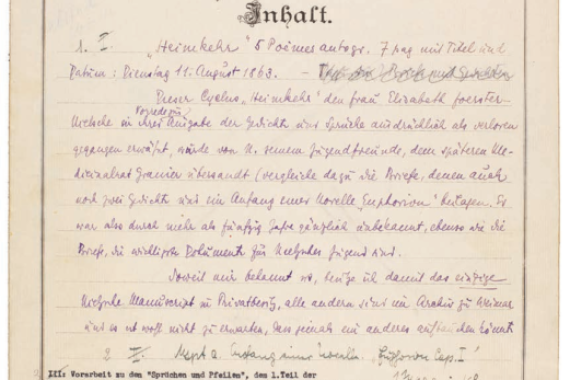 Inhalt.
1. I. „Heimkehr" 5 Poëmes autogr. 7 pag mit Titel und
Datum: Dienstag 11. August 1863. –
Dieser Cyclus „Heimkehr" den Frau Elisabeth Foerster-
Vorrede zu
Nietzsche in ihrer Ausgabe der Gedichte und Sprüche ausdrücklich als verloren
gegangen erwähnt, wurde von N. seinem Jugendfreunde, dem späteren Me-
dicinalrat Granier übersandt (vergleiche dazu die Briefe, denen auch
noch zwei Gedichte und ein Anfang einer Novelle „Euphorion" beilagen. Es
war also durch mehr als fünfzig Jahre gänzlich unbekannt, ebenso wie die
Briefe, die wichtigste Dokumente für Nietzsches Jugend sind.
Soweit mir bekannt ist, besitze ich damit das einzige
Nietzsche Manuscript in Privatbesitz, alle andern sind im Archiv zu Weimar
und es ist wohl nicht zu erwarten, dass jemals ein anderes auftauchen könnte
2 II. Mspt a. Anfang einer Novelle. „Euphorion Cap. I"
III: Vorarbeit zu den "Sprüchen und Pfeilen", des 1.Teil der